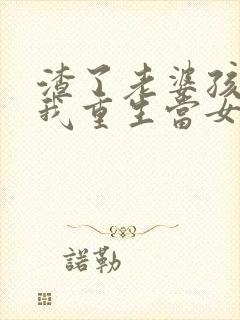 渣了老婆孩
我重生当女
諾勒